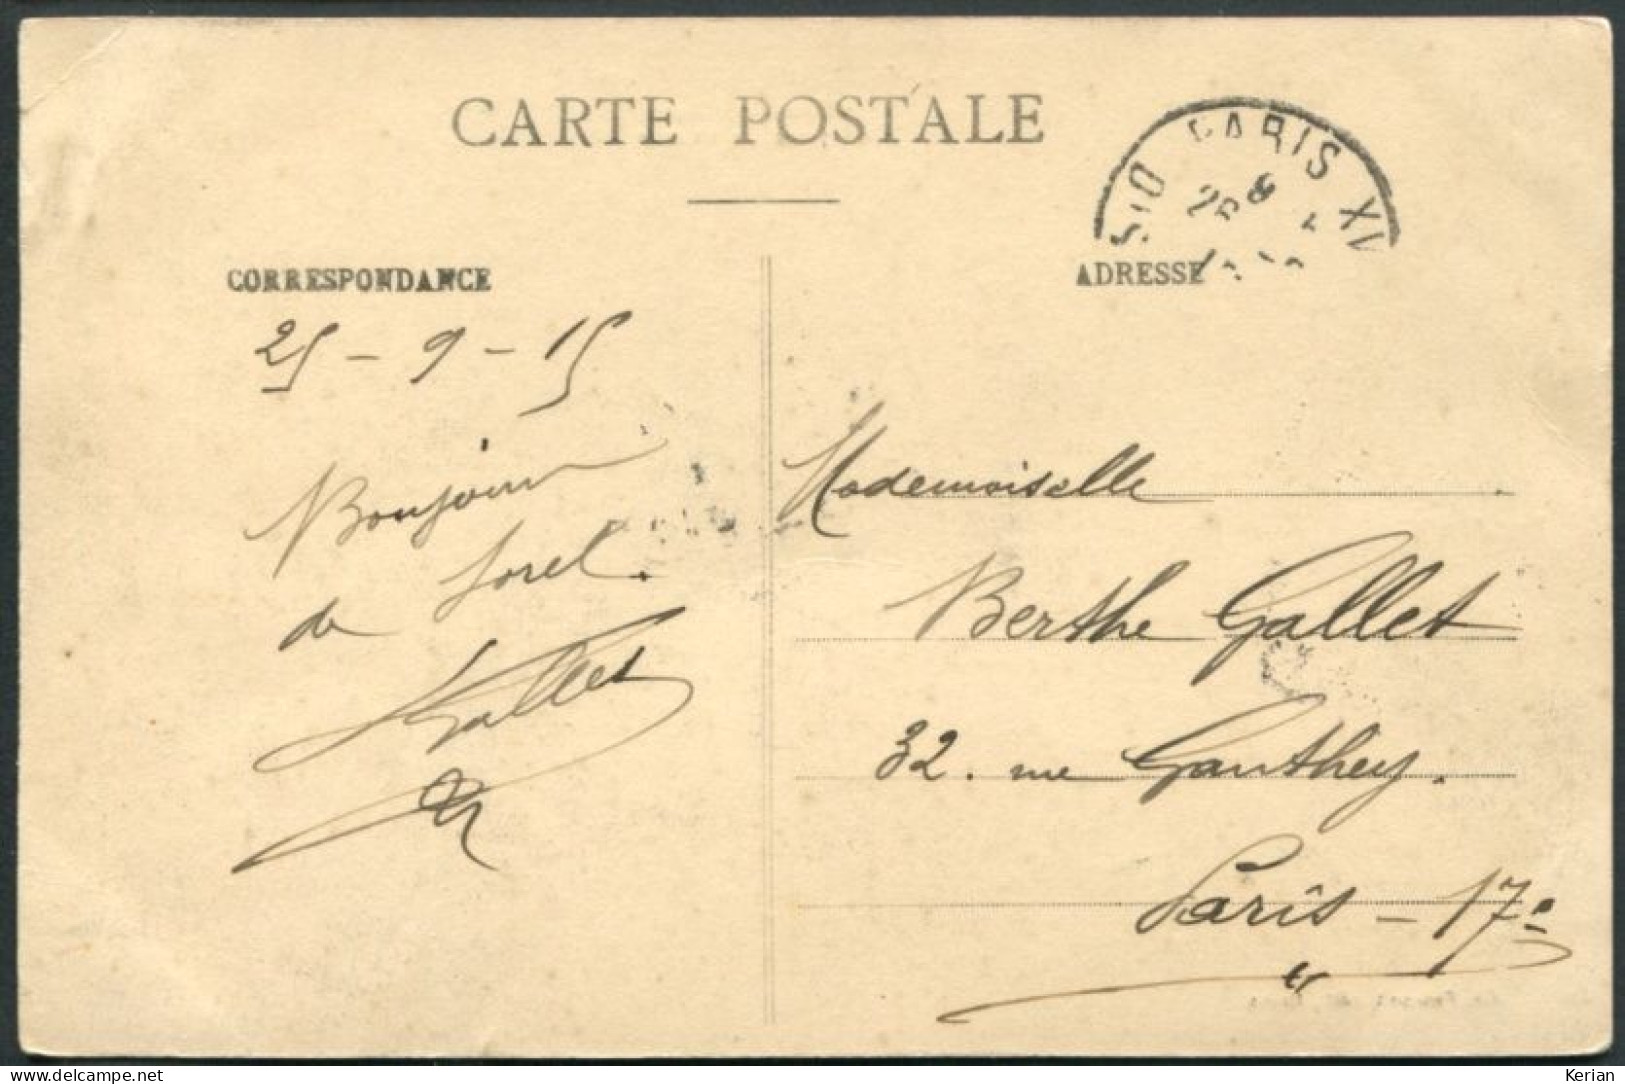 CARTE POSTALE
PARIS XV
CORRESPONDANCE
ADRESSE
25 - 9 - 15
Bonjour
de Sorel.
Gallet
Mademoiselle
Berthe Gallet
32. rue Gauthey.
Paris - 17e
delcampe.net
Kerian